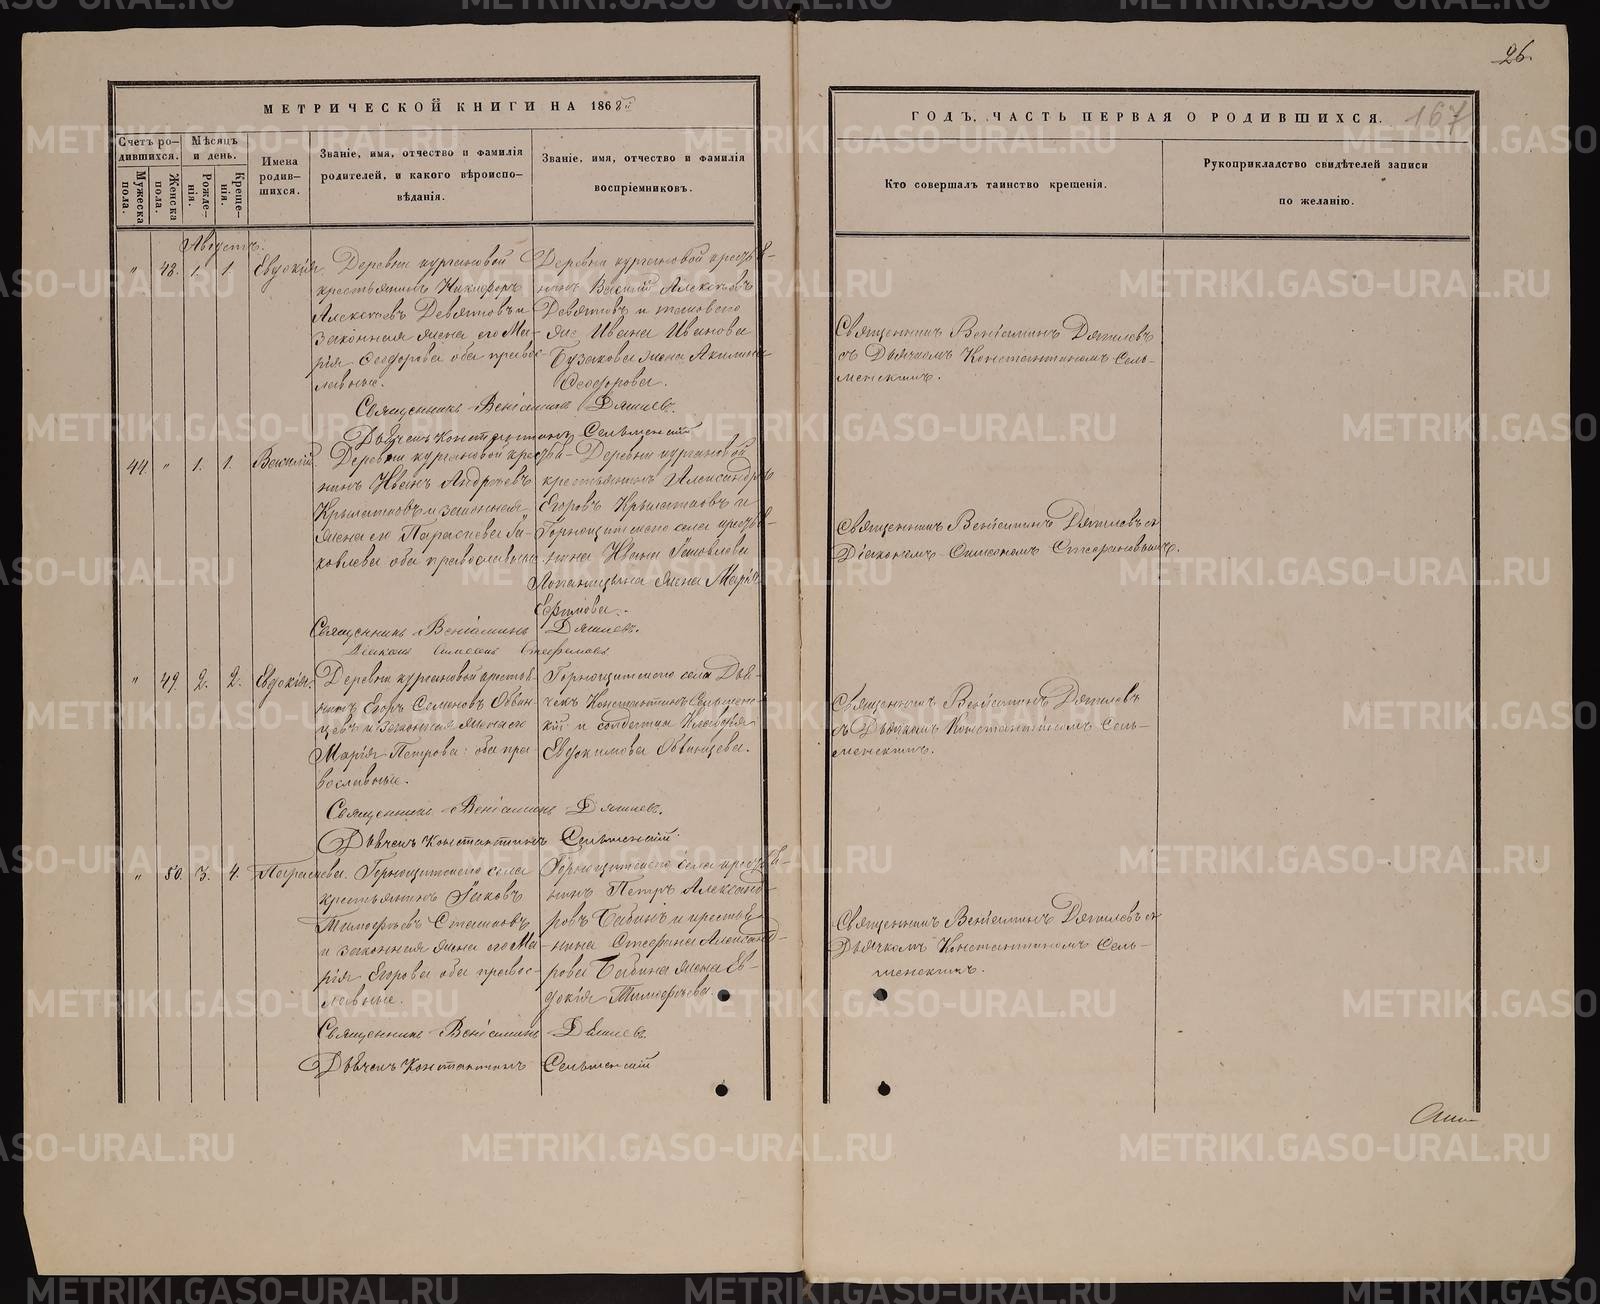 26.
МЕТРИЧЕСКОЙ КНИГИ НА 1868й
ГОДЪ, ЧАСТЬ ПЕРВАЯ О РОДИВШИХСЯ.
167
Счетъ ро-
дившихся.
Мужеска
пола.
Женска
пола.
Мѣсяцъ
и день.
Рожде-
нія.
Креще-
нія.
Имена
родив-
шихся.
Званіе, имя, отчество и фамилія
родителей, и какого вѣроиспо-
вѣданія.
Званіе, имя, отчество и фамилія
воспріемниковъ.
Кто совершалъ таинство крещенія.
Рукоприкладство свидѣтелей записи
по желанію.
Августъ.
" 48. 1. 1. Евдокія.
Деревни Кургановой
крестьянинъ Никифоръ
Алексѣевъ Девятовъ и
законная жена его Ма-
рія Ѳеодорова оба правос-
лавные.
Деревни Кургановой крестья-
нинъ Василій Алексѣевъ
Девятовъ и таковаго
же Ивана Иванова
Бузакова жена Акилина
Ѳеодорова.
Священникъ Веніаминъ Дягилевъ
съ Дьячкомъ Константиномъ Сель-
менскимъ.
Священникъ Веніаминъ Дягилевъ.
Дьячекъ Константинъ Сельменскій
44. " 1. 1. Василій.
Деревни Кургановой крестья-
нинъ Иванъ Андреевъ
Крылатковъ и законная
жена его Параскева Іа-
ковлева оба православные.
Деревни Кургановой
крестьянинъ Александръ
Егоровъ Крылатковъ и
Горнощитскаго села крестья-
нина Ивана Іаковлева
жена Марія
Ефимова.
Священникъ Веніаминъ Дягилевъ съ
Діакономъ Симеономъ Стефановымъ.
Священникъ Веніаминъ Дягилевъ.
Діаконъ Симеонъ Стефановъ
" 49. 2. 2. Евдокія.
Деревни Кургановой крестья-
нинъ Егоръ Семеновъ Обвин-
цевъ и законная жена его
Марія Петрова: оба пра-
вославные.
Горнощитскаго села Дья-
чекъ Константинъ Сельменс-
кій и солдатка Клавдія
Евдокимова Обвинцева.
Священникъ Веніаминъ Дягилевъ
съ Дьячкомъ Константиномъ Сель-
менскимъ.
Священникъ Веніаминъ Дягилевъ.
Дьячекъ Константинъ Сельменскій.
" 50. 3. 4. Параскева.
Горнощитскаго села
крестьянинъ Іаковъ
Тимофѣевъ
и законная жена его Ма-
рія Егорова оба правос-
лавные.
Горнощитскаго села крестья-
нинъ Петръ Александ-
ровъ Бабинъ и крестья-
нина Стефана Александ-
рова Бабина жена Ев-
докія Тимофѣева.
Священникъ Веніаминъ Дягилевъ съ
Дьячкомъ Константиномъ Сель-
менскимъ.
Священникъ Веніаминъ Дягилевъ.
Дьячекъ Константинъ Сельменскій
METRIKI.GASO-URAL.RU